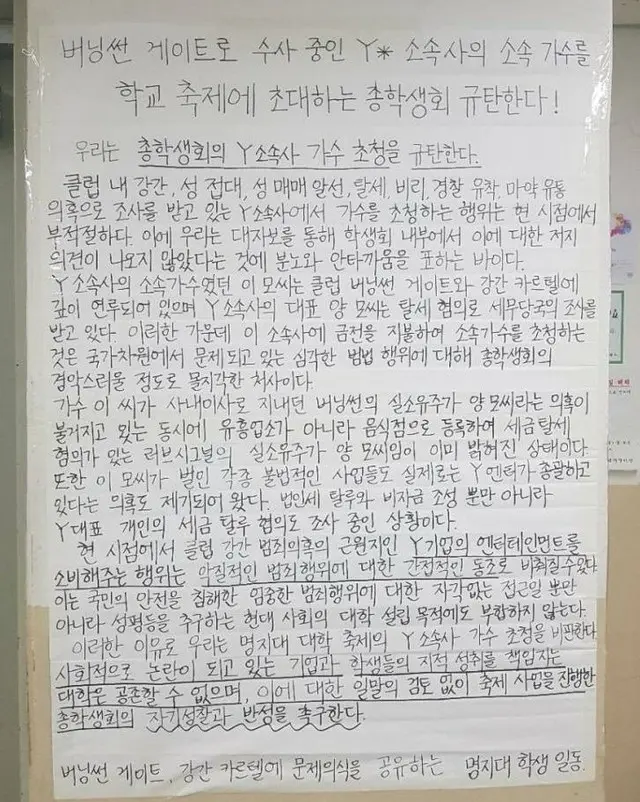 버닝썬 게이트로 수사 중인 Y* 소속사의 소속 가수를
학교 축제에 초대하는 총학생회 규탄한다!
우리는 총학생회의 Y소속사 가수 초청을 규탄한다.
클럽 내 강간, 성 접대, 성 매매 알선, 탈세, 비리, 경찰 유착, 마약 유통
의혹으로 조사를 받고 있는 Y소속사에서 가수를 초청하는 행위는 현 시점에서
부적절하다. 이에 우리는 대자보를 통해 학생회 내부에서 이에 대한 저지
의견이 나오지 않았다는 것에 분노와 안타까움을 표하는 바이다.
Y소속사의 소속가수였던 이 모씨는 클럽 버닝썬 게이트와 강간 카르텔에
깊이 연루되어 있으며 Y소속사의 대표 양 모씨는 탈세 혐의로 세무당국의 조사를
받고 있다. 이러한 가운데 이 소속사에 금전을 지불하여 소속가수를 초청하는
것은 국가차원에서 문제되고 있는 심각한 범법 행위에 대해 총학생회의
경악스러울 정도로 몰지각한 처사이다.
가수 이 씨가 사내이사로 지내던 버닝썬의 실소유주가 양 모씨라는 의혹이
불거지고 있는 동시에 유흥업소가 아니라 음식점으로 등록하여 세금탈세
혐의가 있는 러브시그널의 실소유주가 양 모씨임이 이미 밝혀진 상태이다.
또한 이 모씨가 벌인 각종 불법적인 사업들도 실제로는 Y엔터가 총괄하고
있다는 의혹도 제기되어 왔다. 법인세 탈루와 비자금 조성 뿐만 아니라
Y대표 개인의 세금 탈루 혐의도 조사 중인 상황이다.
현 시점에서 클럽 강간 범죄의혹의 근원지인 Y기업의 엔터테인먼트를
소비해주는 행위는 악질적인 범죄행위에 대한 간접적인 동조로 비춰질 수 있다.
이는 국민의 안전을 침해한 엄중한 범죄행위에 대한 자각없는 접근일 뿐만
아니라 성평등을 추구하는 현대 사회의 대학 설립 목적에도 부합하지 않는다.
이러한 이유로 우리는 명지대 대학 축제의 Y소속사 가수 초청을 비판한다.
사회적으로 논란이 되고 있는 기업과 학생들의 지적 성취를 책임지는
대학은 공존할 수 없으며, 이에 대한 일말의 검토 없이 축제 사업을 진행한
총학생회의 자기성찰과 반성을 촉구한다.
버닝썬 게이트, 강간 카르텔에 문제의식을 공유하는 명지대 학생 일동.